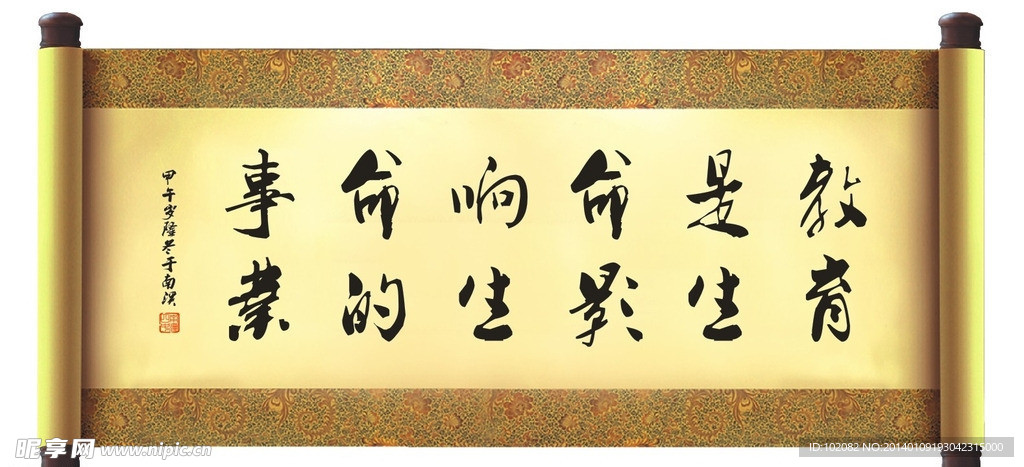 教育
是生
命影
响生
命的
事業
甲午岁隆冬于南溟
昵享网 www.nipic.cn
ID:102082 NO:20140109193042315000